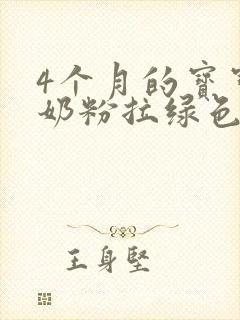 4个月的寳寳
奶粉拉绿色
王身堅